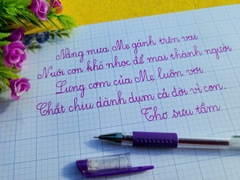 Nắng mưa Mẹ gánh trên vai
Nuôi con khó nhọc để mai thành người
Lưng cơm của Mẹ luôn vơi
Chắt chiu dành dụm cả đời vì con.
Thơ sưu tầm